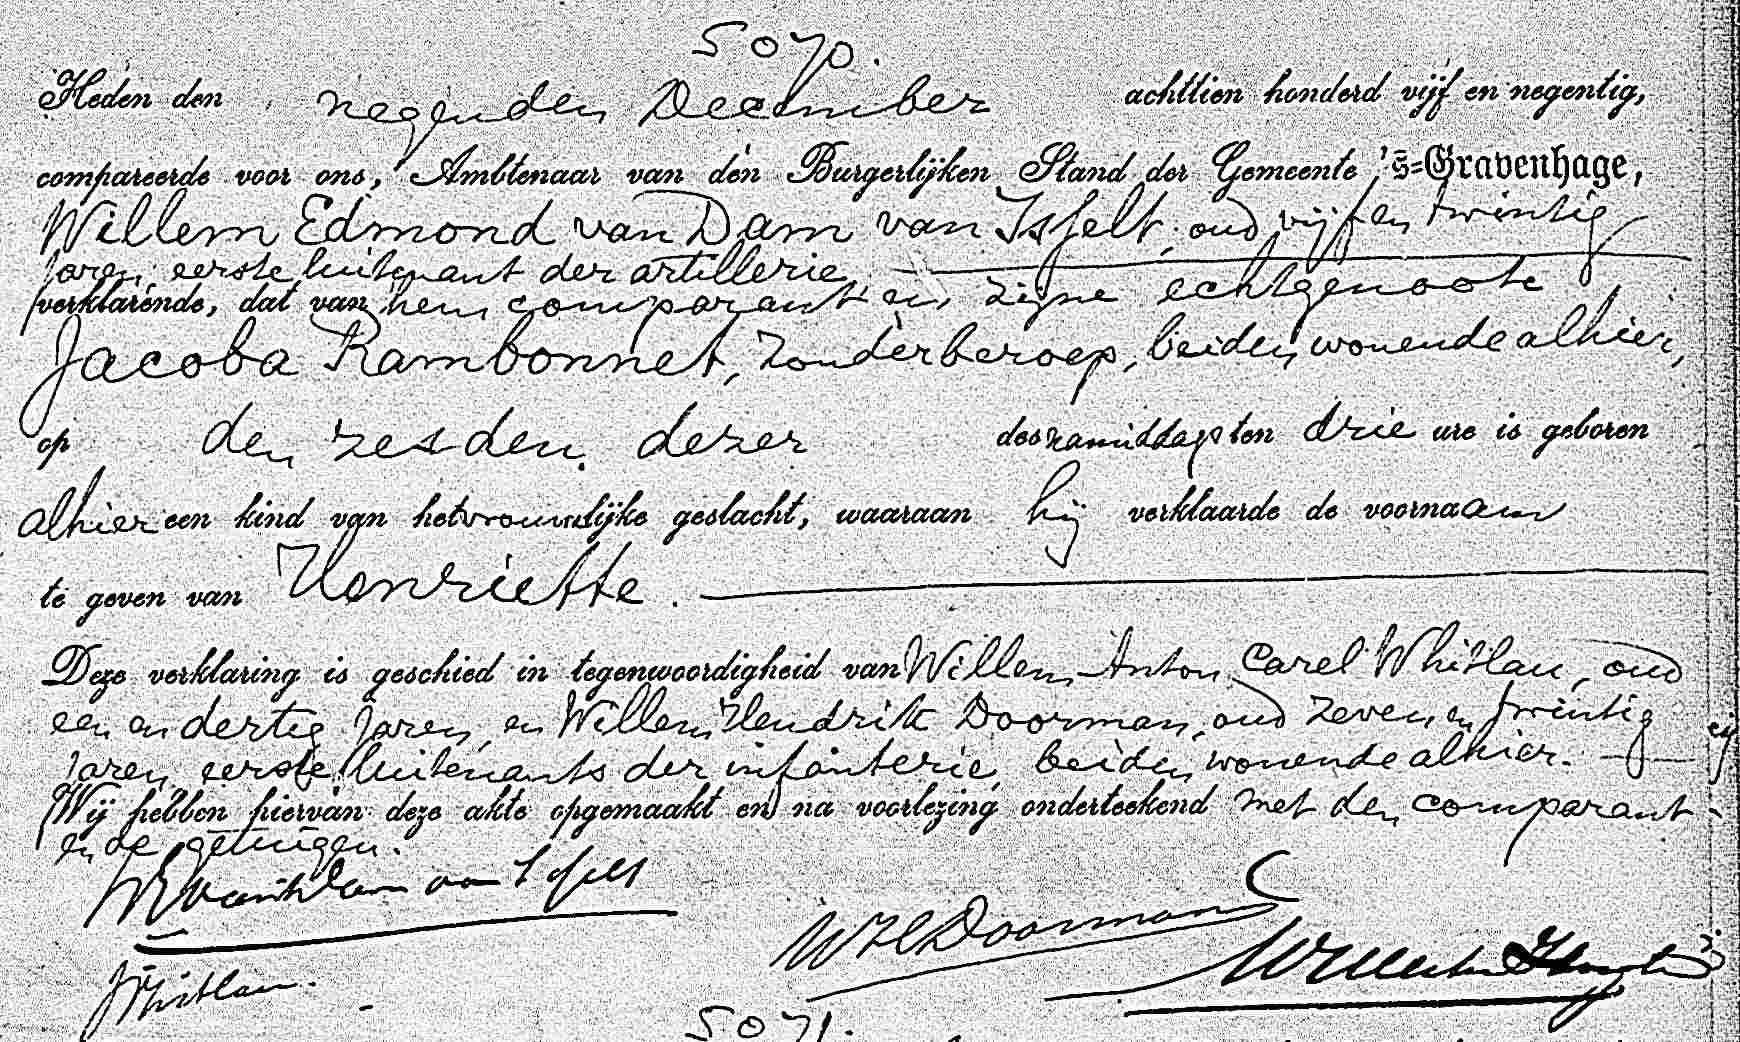 5070.
Heden den negenden December achttien honderd vijf en negentig,
compareerde voor ons, Ambtenaar van den Burgerlijken Stand der Gemeente 's-Gravenhage,
Willem Edmond van Dam van Isselt, oud vijf en twintig
jaren, eerste luitenant der artillerie
verklarende, dat van hem comparant en zijne echtgenoote
Jacoba Rambonnet, zonder beroep, beiden wonende alhier,
op den zesden dezer des namiddags ten drie ure is geboren
alhier een kind van het vrouwelijke geslacht, waaraan hij verklaarde de voornaam
te geven van Henriette.
Deze verklaring is geschied in tegenwoordigheid van Willem Anton Carel Whitlau, oud
een en dertig jaren, en Willem Hendrik Doorman, oud zeven en twintig
jaren, eerste luitenants der infanterie, beiden wonende alhier.
Wij hebben hiervan deze akte opgemaakt en na voorlezing onderteekend met den comparant
en de getuigen.
WE van Dam van Isselt
WH Doorman
Whitlau.
5071.